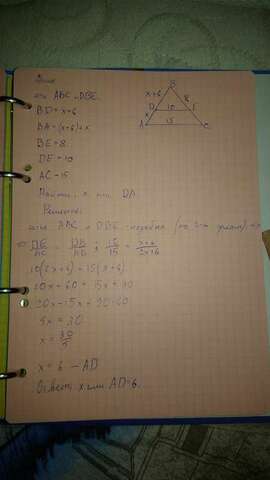 ABC DBE
B
x+6
8
D 10 E
x
A 15 C
BD = x+6
BA = (x+6)+x
BE = 8
DE = 10
AC = 15
Найти: x или DA.
Решение:
ABC и DBE - подобны (по 2-м углам) =>
DE/AC = DB/AB ; 10/15 = x+6/2x+6
10(2x+6) = 15(x+6)
20x+60 = 15x+90
20x-15x = 90-60
5x = 30
x = 30/5
x = 6 — AD
Ответ: x или AD=6.